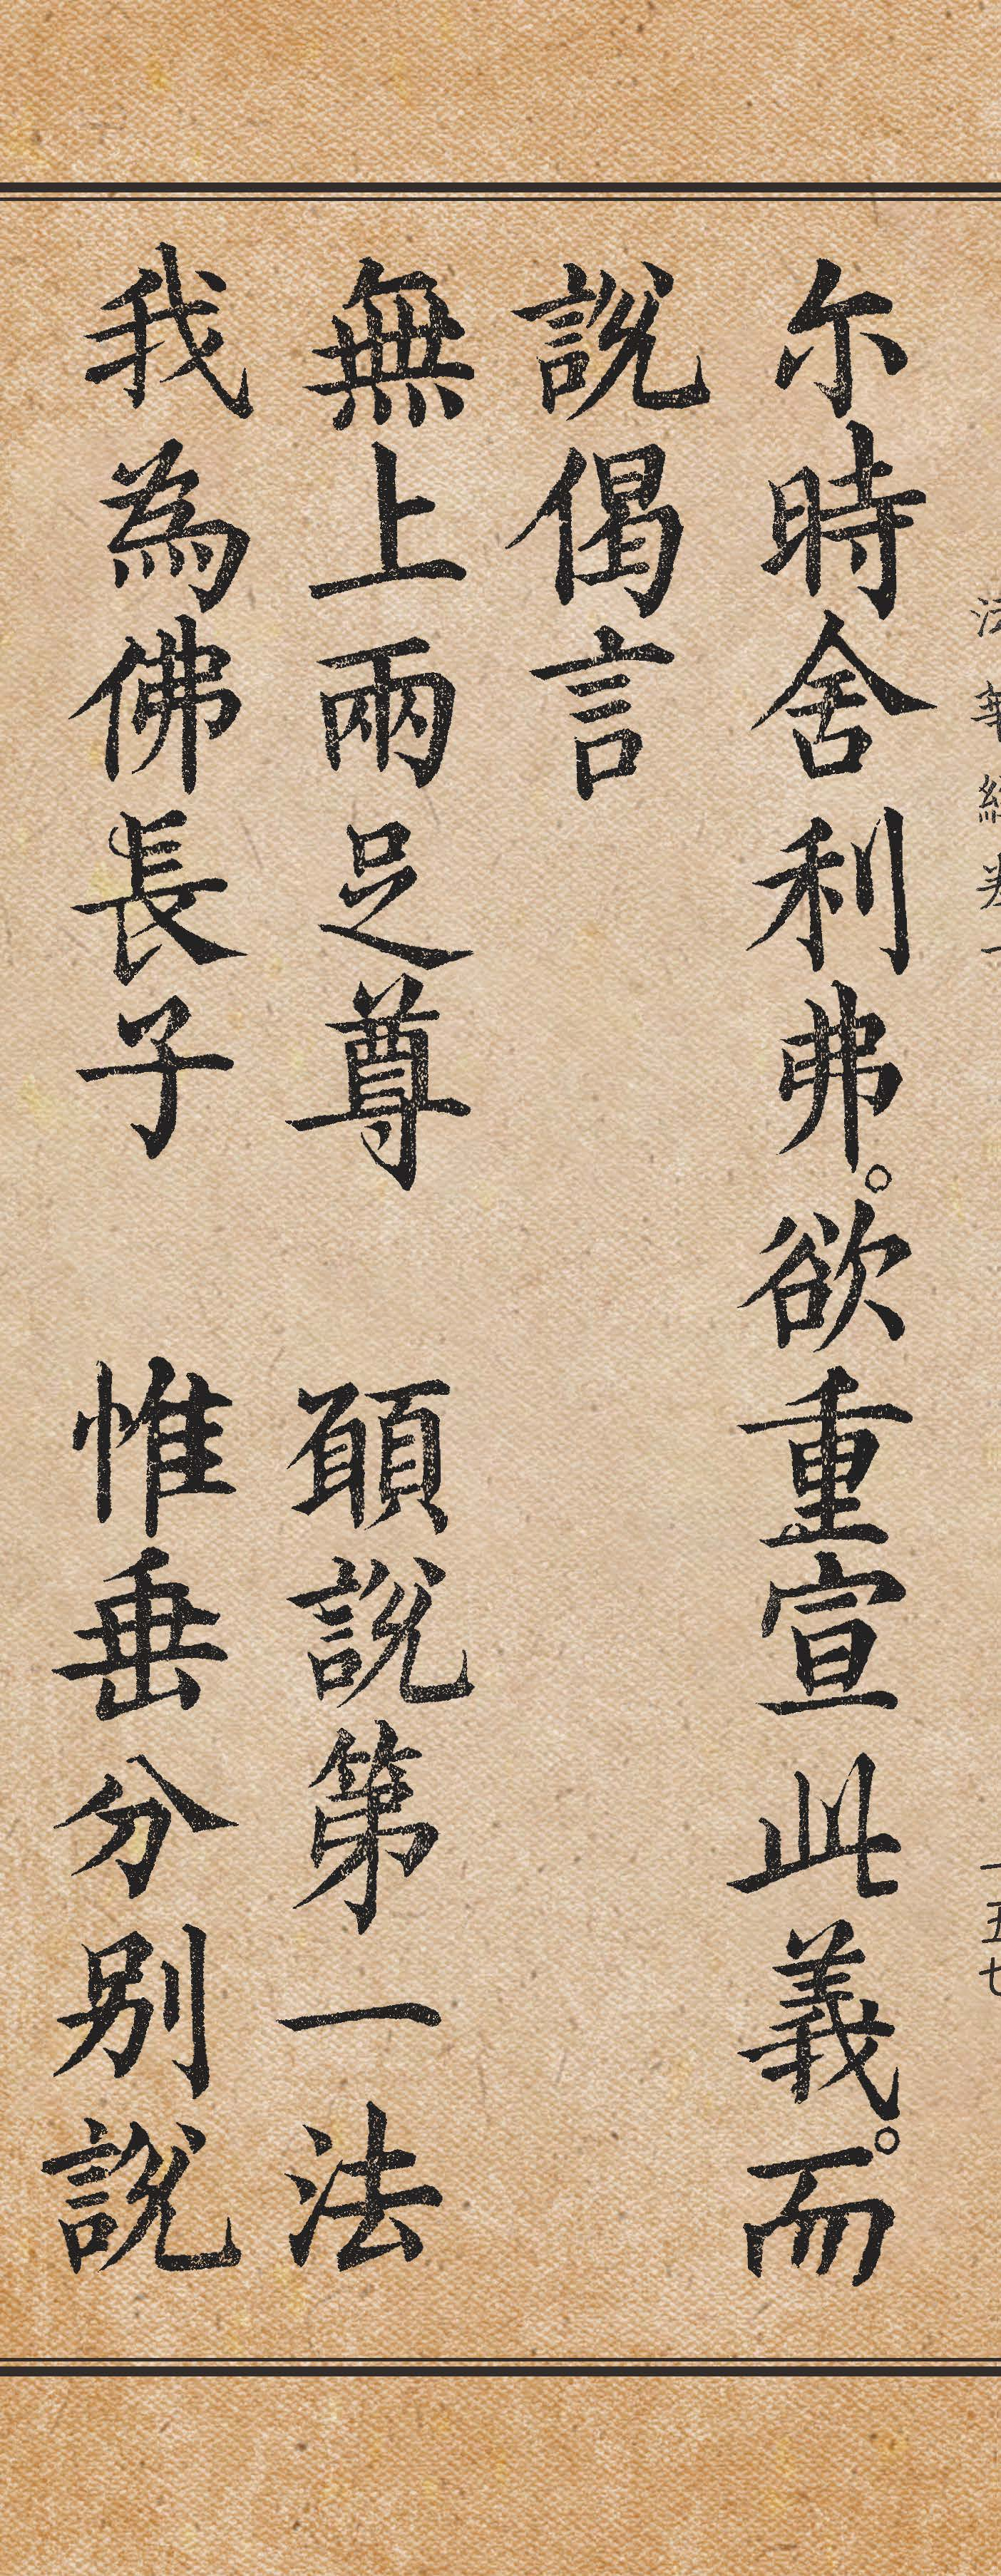 法華經卷一 一五七
尒時舍利弗。欲重宣此義。而
說偈言
無上兩足尊 願說第一法
我為佛長子 惟垂分別說